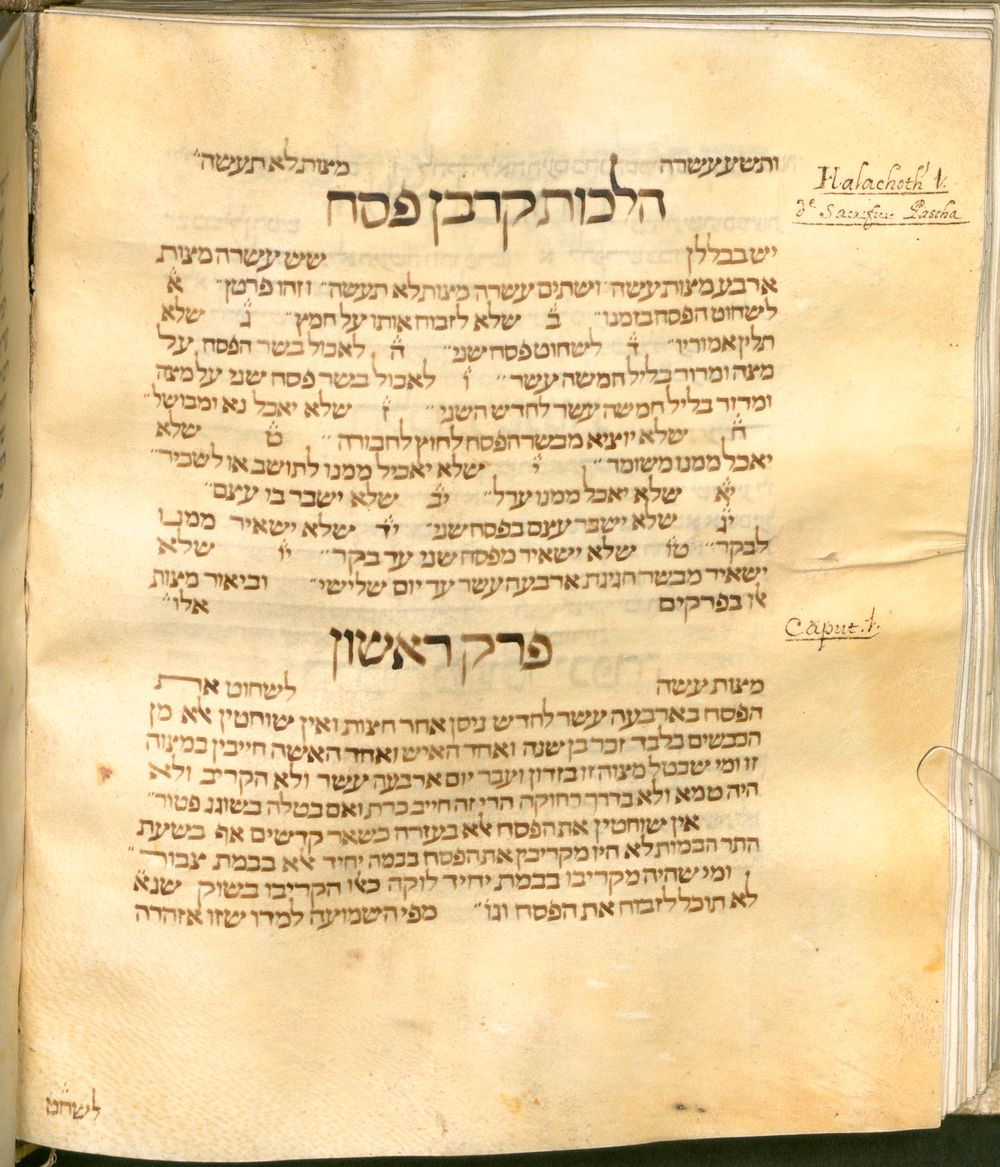 ותשע עשרה מצות לא תעשה״
הלכות קרבן פסח
Halachoth 1.
de Sacrificio Pascha
יש בכללן שש עשרה מצות
ארבע מצות עשה ושתים עשרה מצות לא תעשה״ וזהו פרטן״ א̈
לשחוט הפסח בזמנו״ ב̈ שלא לזבוח אותו על חמץ״ ג̈ שלא
תלין אמוריו״ ד̈ לשחוט פסח שני״ ה̈ לאכול בשר הפסח על
מצה ומרור בליל חמשה עשר״ ו̈ לאכול בשר פסח שני על מצה
ומרור בליל חמשה עשר לחדש השני״ ז̈ שלא יאכל נא ומבושל״
ח̈ שלא יוציא מבשר הפסח לחוץ לחבורה״ ט̈ שלא
יאכל ממנו משומד״ י̈ שלא יאכיל ממנו לתושב או לשכיר״
י̈א שלא יאכל ממנו ערל״ י̈ב שלא ישבר בו עצם״
י̈ג שלא ישבר עצם בפסח שני״ י̈ד שלא יישאיר ממנו
לבקר״ ט̈ו שלא ישאיר מפסח שני עד בקר״ י̈ו שלא
ישאיר מבשר חגיגת ארבעה עשר עד יום שלישי״ וביאור מצות
אלו בפרקים אלו״
פרק ראשון
Caput. 1.
מצות עשה לשחוט את
הפסח בארבעה עשר לחדש ניסן אחר חצות ואין שוחטין אלא מן
הכבשים בלבד זכר בן שנה ואחד האיש ואחד האשה חייבין במצוה
זו ומי שבטל מצוה זו בזדון ועבר יום ארבעה עשר ולא הקריב ולא
היה טמא ולא בדרך רחוקה הרי זה חייב כרת ואם בטלה בשוגג פטור״
אין שוחטין את הפסח אלא בעזרה כשאר קדשים אף בשעת
התר הבמות לא היו מקריבין את הפסח בבמה יחיד אלא בבמת צבור״
ומי שהיה מקריבו בבמת יחיד לוקה כאלו הקריבו בשוק שנא̈
לא תוכל לזבוח את הפסח וגו̈״ מפי השמועה למדו שזו אזהרה
לשח̈ט